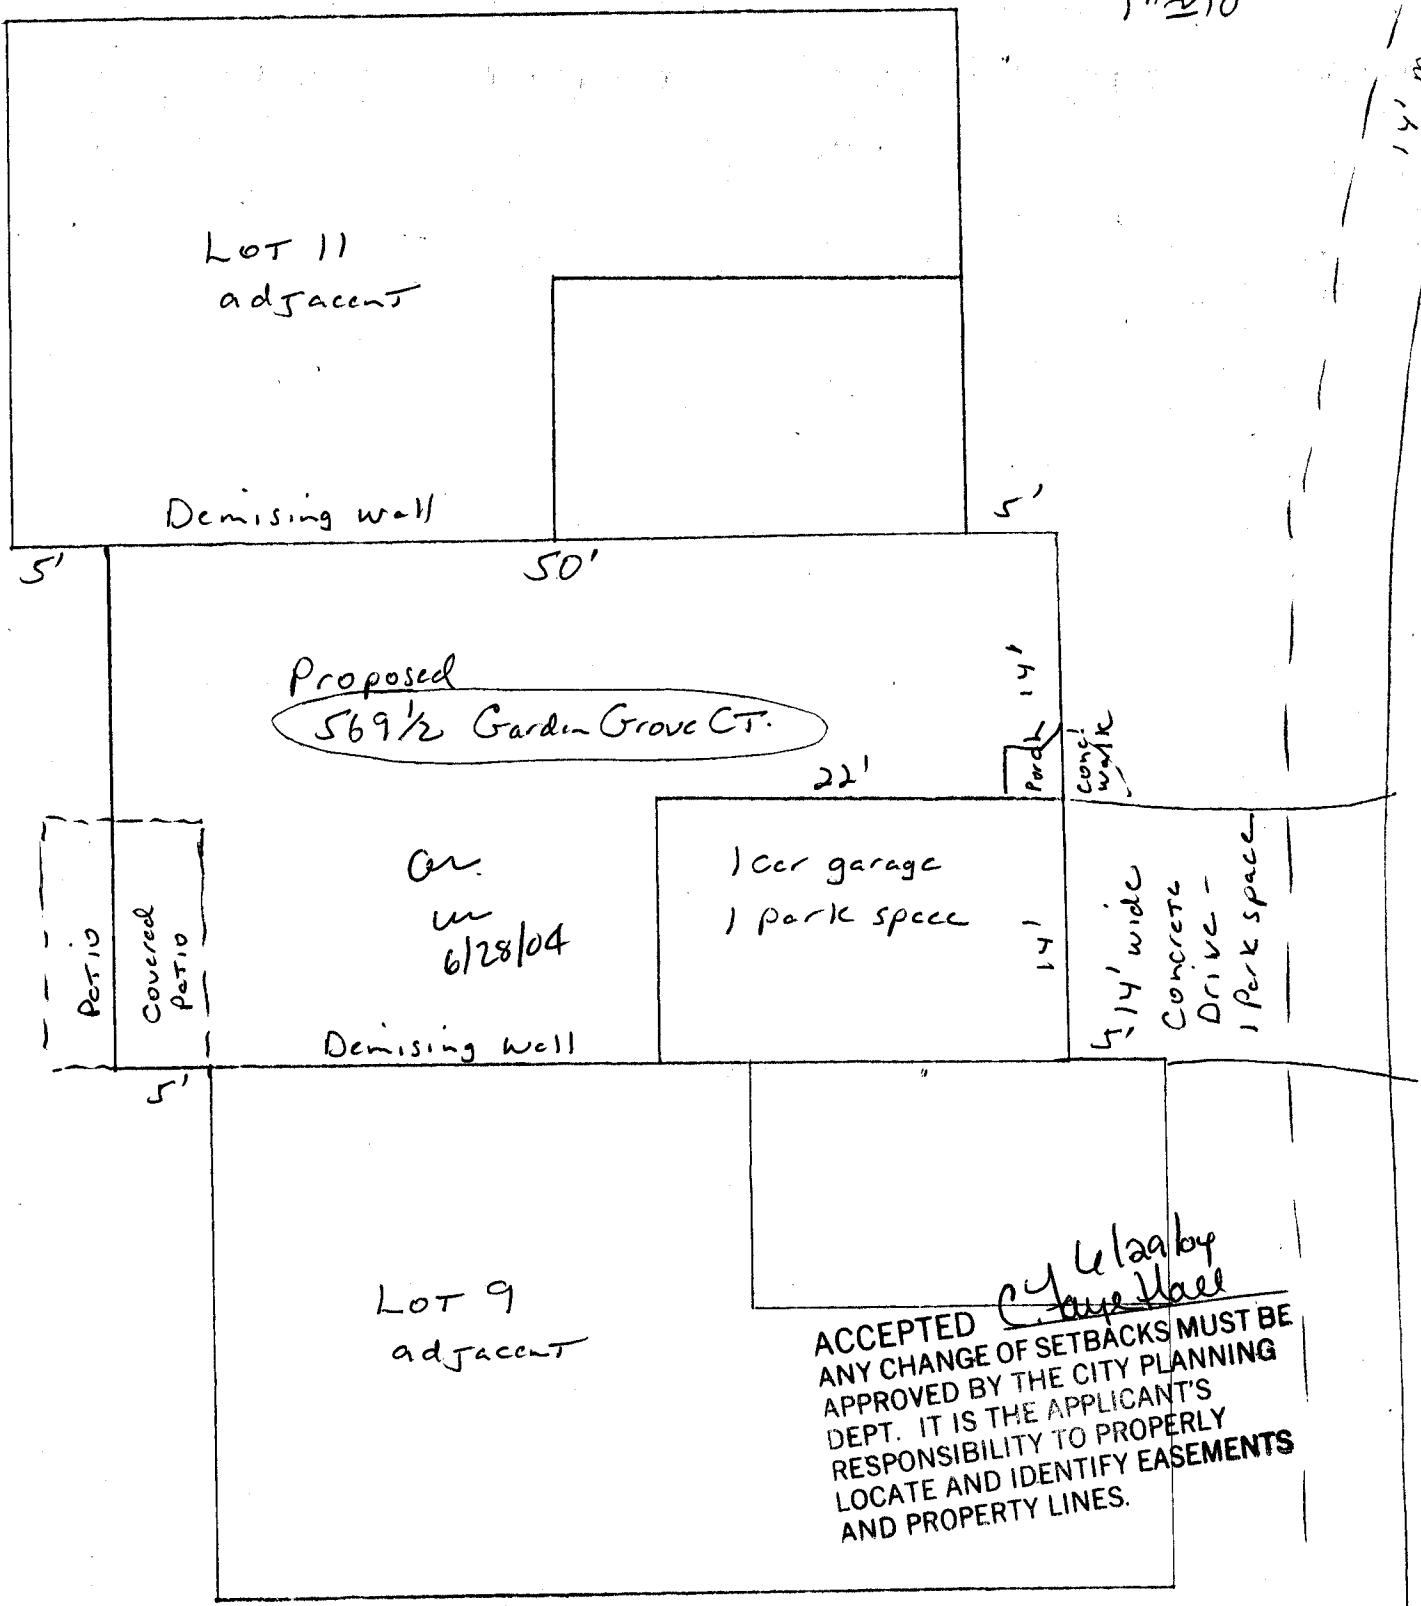 1" = 10'
14'
LOT 11
adjacent
Demising wall
5'
5'
50'
Proposed
569 1/2 Garden Grove CT.
14'
Porch
conc.
walk
22'
1 car garage
1 park space
14'
14' wide
Concrete
Drive -
1 Park space
6/28/04
Patio
Covered
Patio
Demising wall
5'
LOT 9
adjacent
6/29/04
ACCEPTED C. Faye Hall
ANY CHANGE OF SETBACKS MUST BE
APPROVED BY THE CITY PLANNING
DEPT. IT IS THE APPLICANT'S
RESPONSIBILITY TO PROPERLY
LOCATE AND IDENTIFY EASEMENTS
AND PROPERTY LINES.